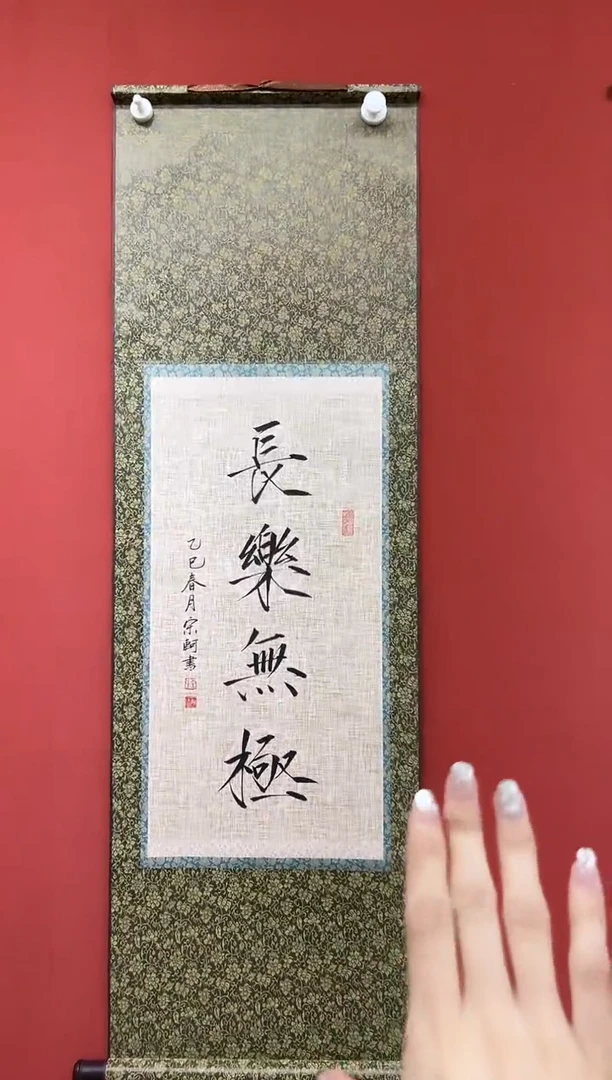 長樂無極
乙巳春月宗軻書